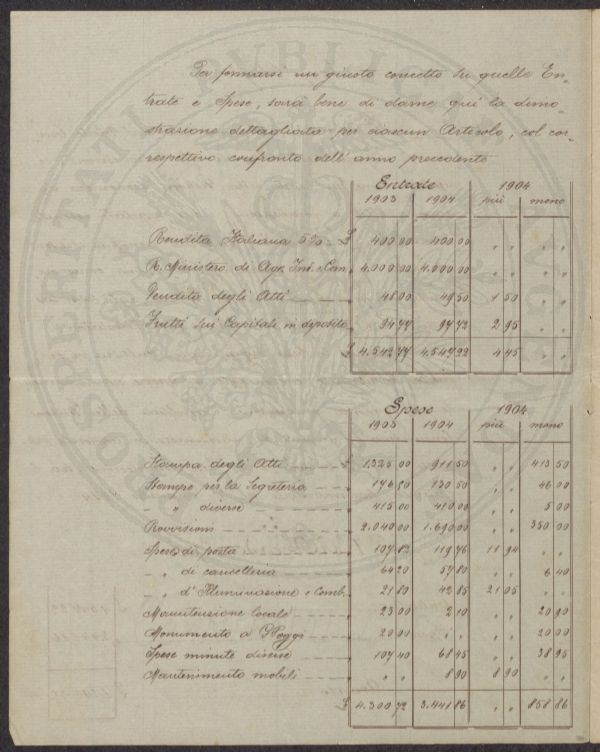 Per formarsi un giusto concetto su quelle En-
trate e Spese, sarà bene di darne qui la dimo-
strazione dettagliata per ciascun Articolo, col cor-
respettivo confronto dell'anno precedente
Entrate 1904
1903 1904 più meno
Rendita Italiana 5% £ 400 00 400 00 " " " "
R. Ministero di Agr. Ind. e Com. 4.000 00 4.000 00 " " " "
Vendita degli Atti 48 00 49 50 1 50 " "
Frutti sui Capitali in deposito 94 77 97 72 2 95 " "
£ 4.542 77 4.547 22 4 45 " "
Spese 1904
1903 1904 più meno
Stampa degli Atti £ 1.325 00 911 50 " " 413 50
Stampe per la Segreteria 176 50 130 50 " " 46 00
" diverse 415 00 410 00 " " 5 00
Provvisioni 2.040 00 1.690 00 " " 350 00
Spese di posta 107 82 119 76 11 94 " "
" di cancelleria 64 20 57 80 " " 6 40
" d'Illuminazione e Comb. 21 80 42 85 21 05 " "
Manutenzione locale 23 00 2 10 " " 20 90
Monumento a Poggi 20 00 " " " " 20 00
Spese minute diverse 107 40 68 45 " " 38 95
Mantenimento mobili " " 8 90 8 90 " "
£ 4.300 72 3.441 86 " " 858 86
PROSPERITATI PUBLICAE AUGENDAE